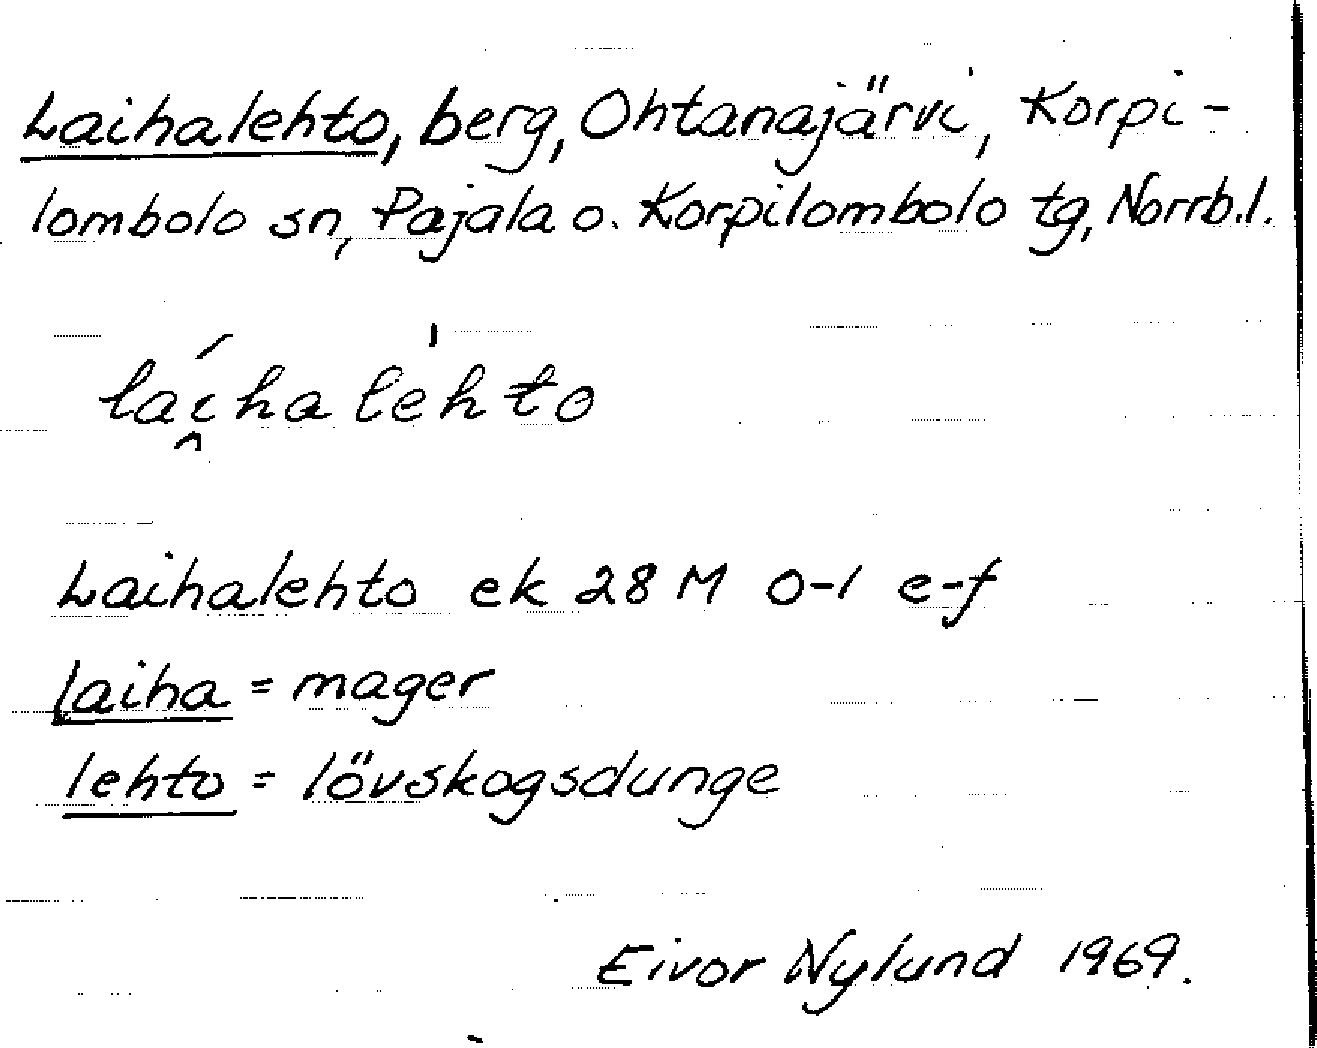 Laihalehto, berg, Ohtanajärvi, Korpi-
lombolo sn, Pajala o. Korpilombolo tg, Norrb.l.
lái̯halèhto
Laihalehto ek 28 M 0-1 e-f
laiha = mager
lehto = lövskogsdunge
Eivor Nylund 1969.